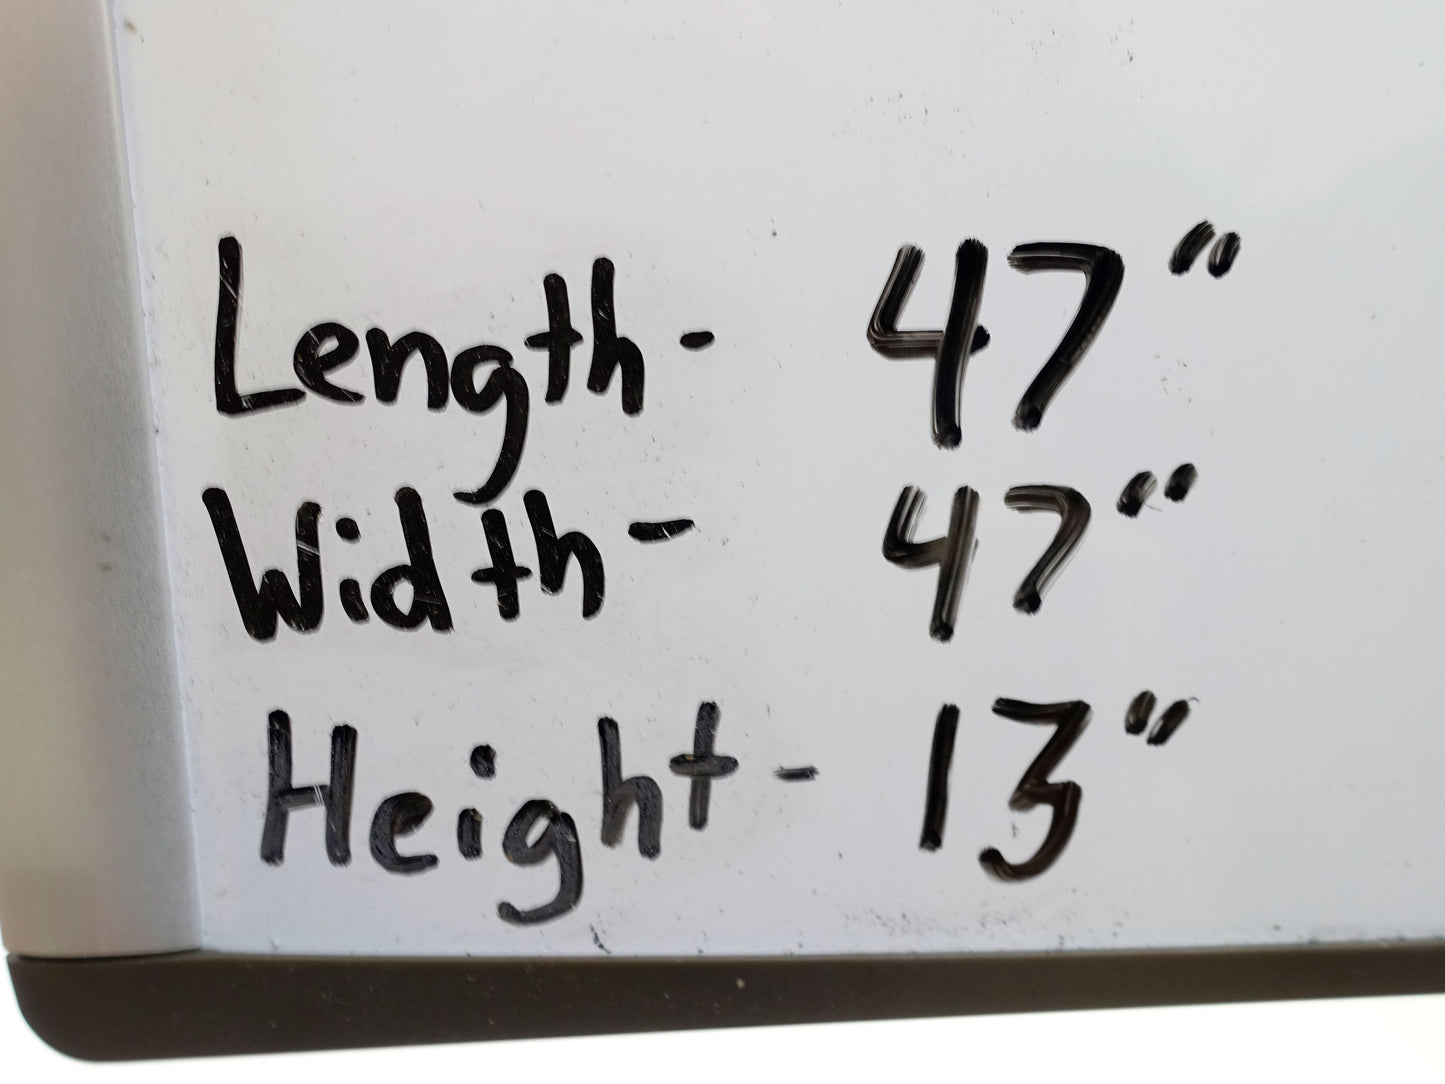 Length- 47"
Width- 47"
Height- 13"